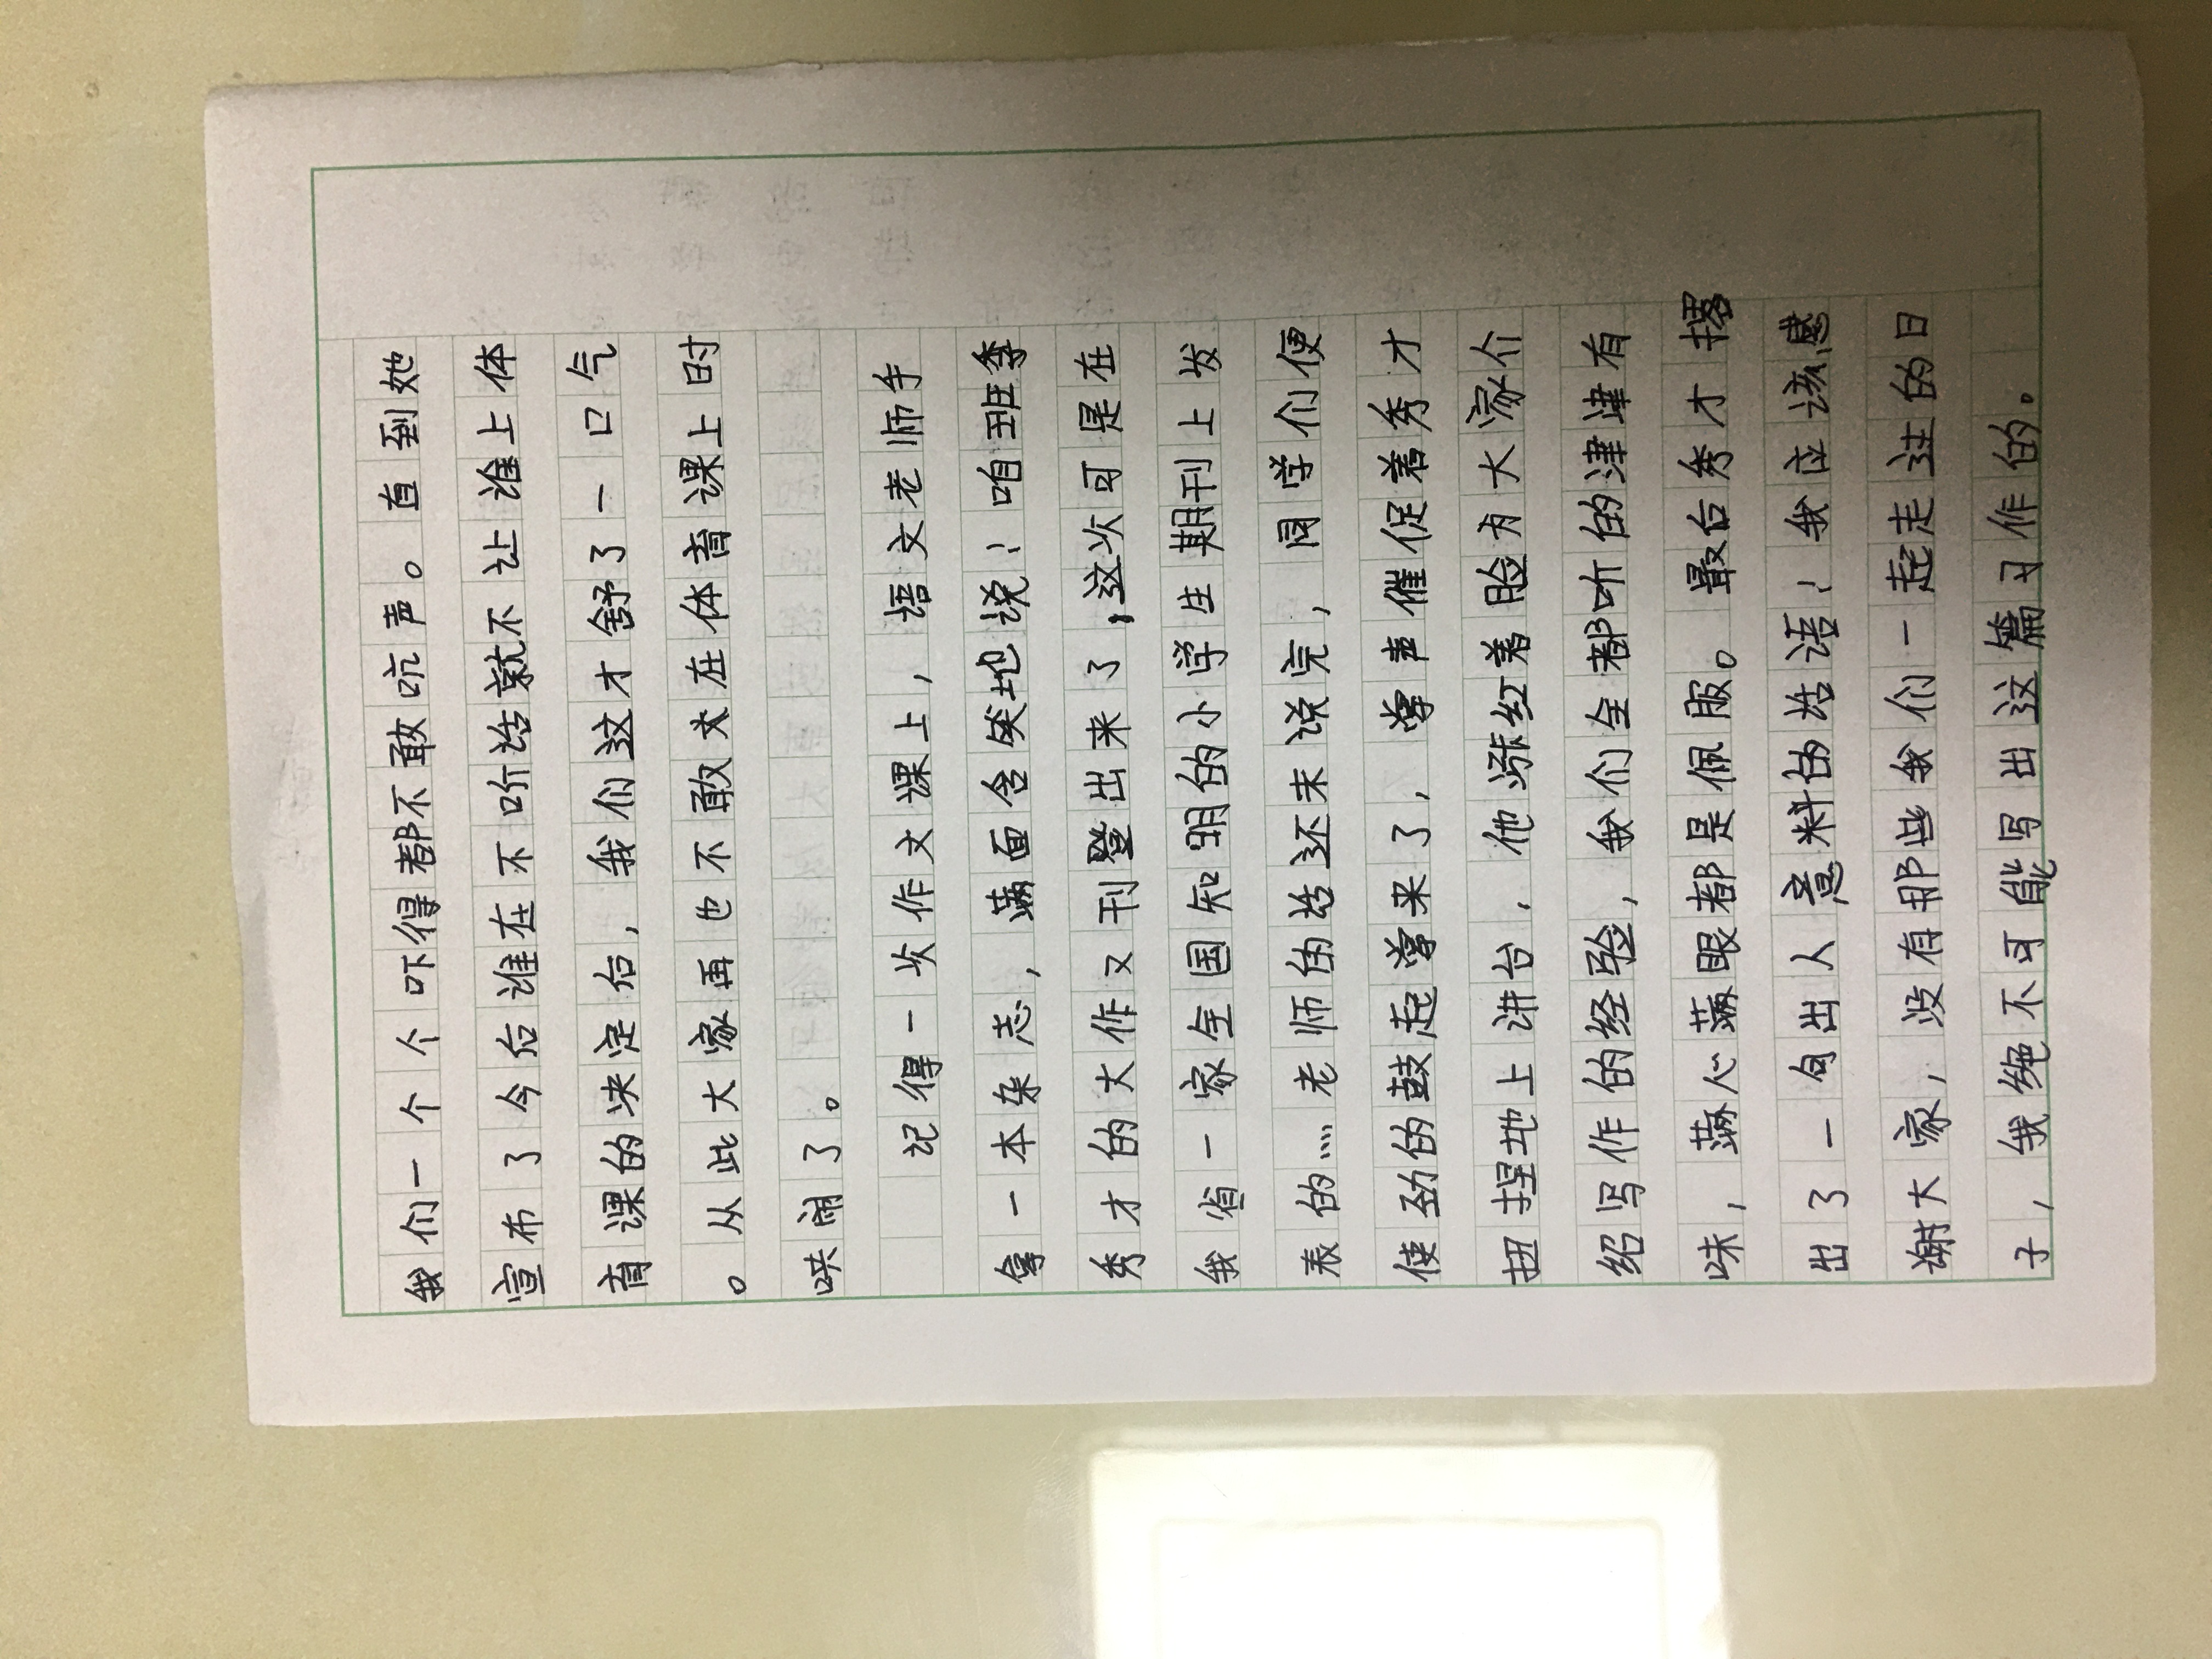 我们一个个吓得都不敢吭声。直到她
宣布了今后谁在不听话就不让谁上体
育课的决定后，我们这才舒了一口气
。从此大家再也不敢大在体育课上时
哄闹了。
记得一次作文课上，语文老师手
拿一本杂志，满面含笑地说：咱班季
秀才的大作又刊登出来了，这次可是在
我省一家全国知明的小学生期刊上发
表的……老师的话还未说完，同学们便
使劲的鼓起掌来了，掌声催促着秀才
扭捏地上讲台，他涨红着脸为大家介
绍写作的经验，我们全都听的津津有
味，满心满眼都是佩服。最后秀才撂
出了一句出人意料的话语：我应该感
谢大家，没有那些我们一起走过的日
子，我绝不可能写出这篇习作的。